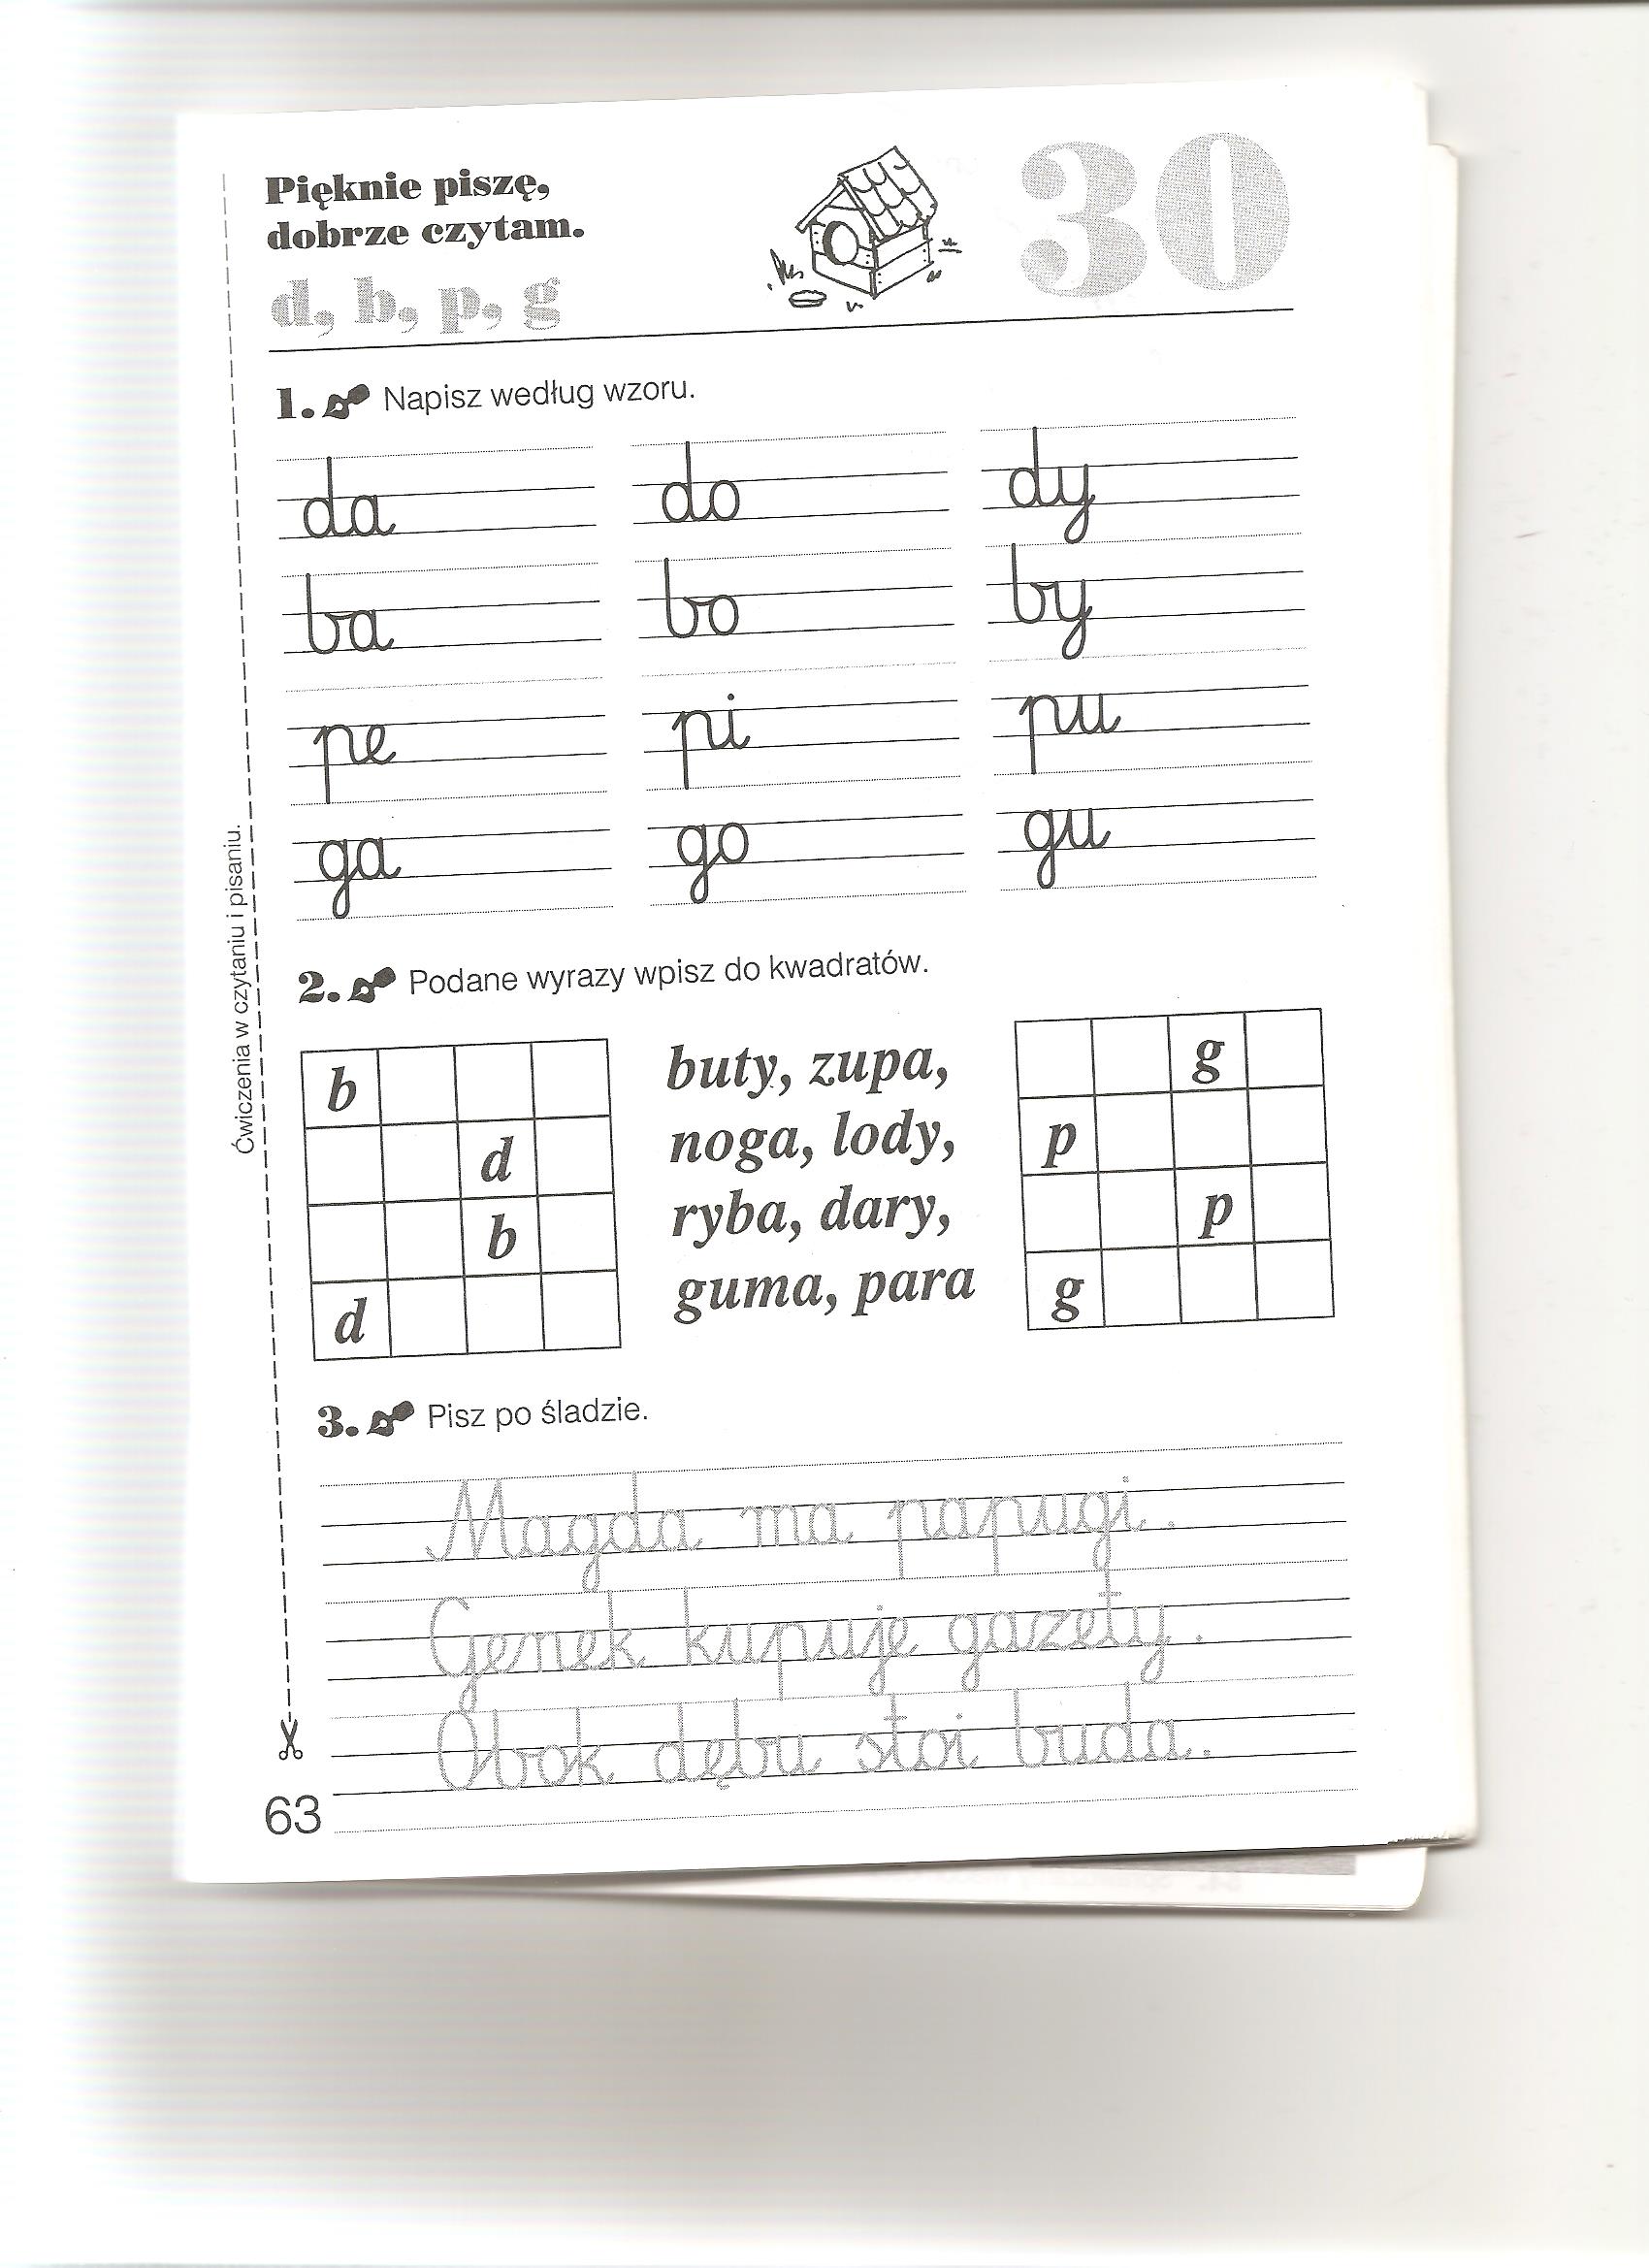 Pięknie piszę,
dobrze czytam.
d, b, p, g
30
1. Napisz według wzoru.
da do dy
ba bo by
pe pi pu
ga go gu
2. Podane wyrazy wpisz do kwadratów.
b
d
b
d
buty, zupa,
noga, lody,
ryba, dary,
guma, para
g
p
p
g
3. Pisz po śladzie.
Magda ma papugi.
Genek kupuje gazety.
Obok dębu stoi buda.
63
Ćwiczenia w czytaniu i pisaniu.